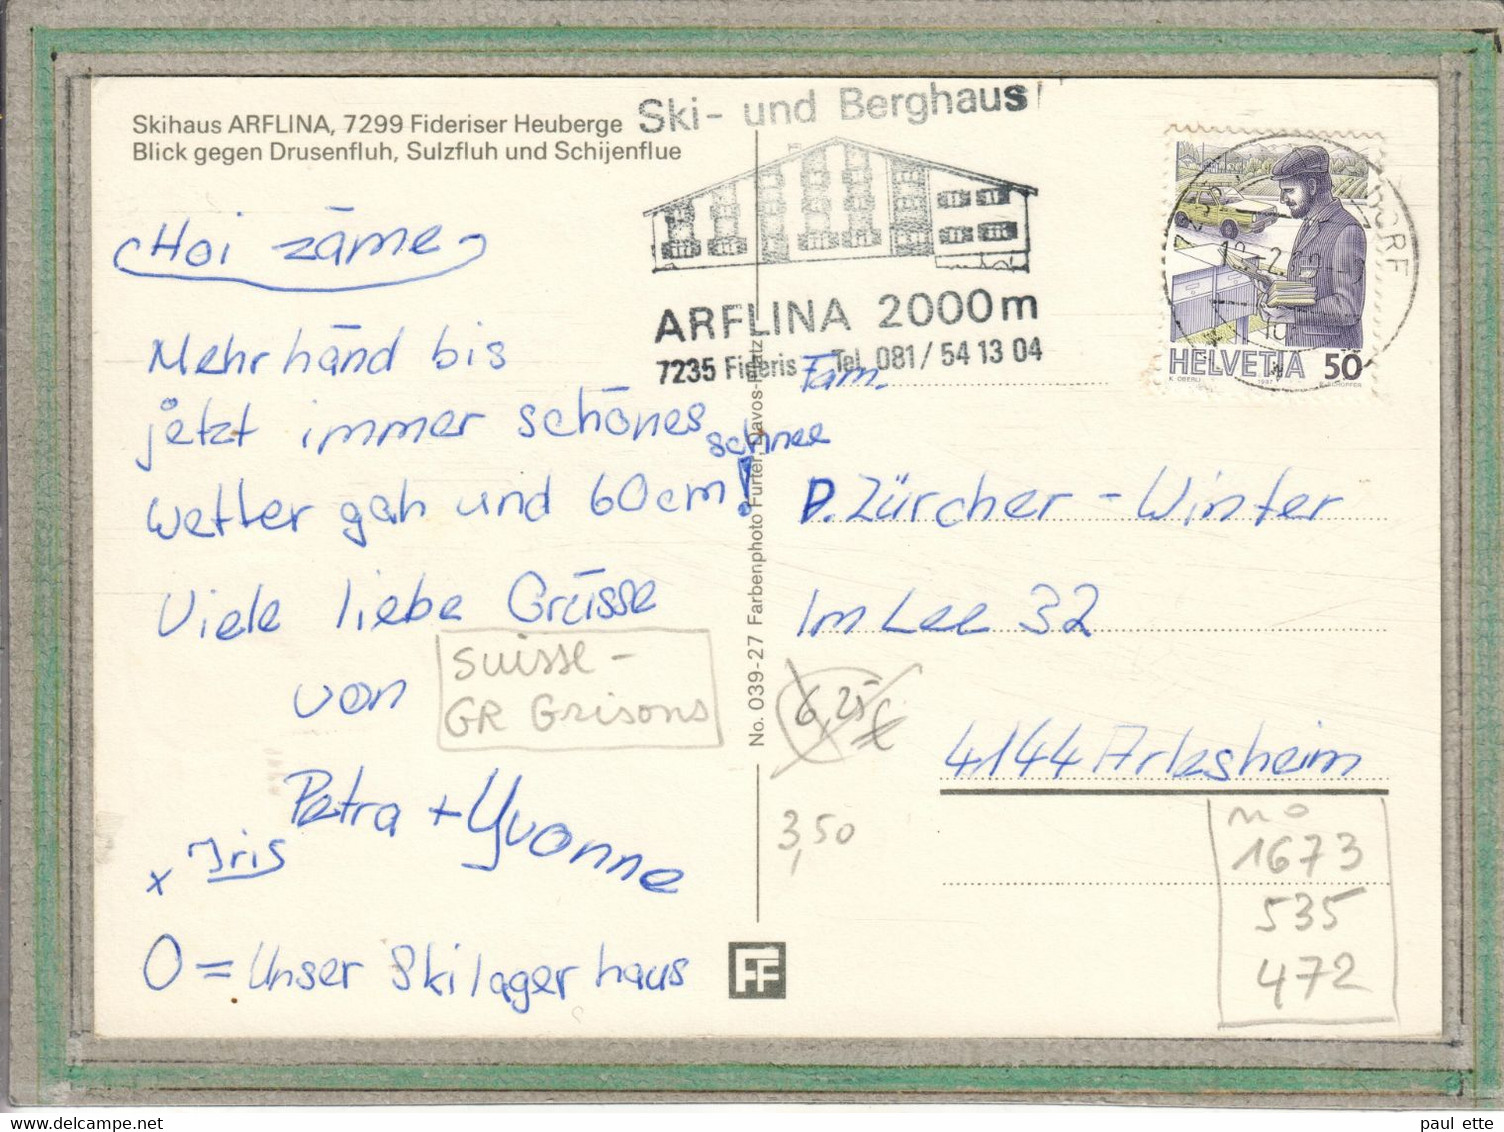 Skihaus ARFLINA, 7299 Fideriser Heuberge
Blick gegen Drusenfluh, Sulzfluh und Schijenflue
Ski- und Berghaus
ARFLINA 2000m
7235 Fideris Tel. 081/54 13 04
HELVETIA 50
K. OBERLI
Hoi zāme
Mehr händ bis
jetzt immer schönes
wetter gah und 60cm schnee!
Viele liebe Grüsse
von
Petra + Yvonne
x Iris
O = Unser Skilagerhaus
suisse -
GR Grisons
No. 039-27 Farbenphoto Furter, Davos-Platz
Fam.
P. Zürcher - Winter
Im Lee 32
4144 Arlesheim
6,25 €
3,50
no
1673
535
472
FF
delcampe.net
paul ette